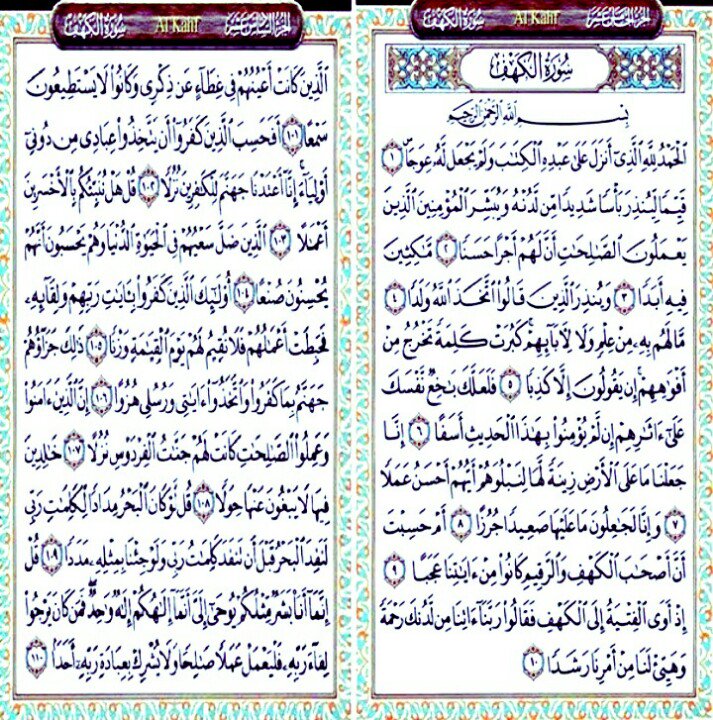 الجزء الخامس عشر Al Kahf سورة الكهف
سُورَةُ الكَهْفِ
بِسْمِ اللَّهِ الرَّحْمَٰنِ الرَّحِيمِ
الْحَمْدُ لِلَّهِ الَّذِي أَنزَلَ عَلَىٰ عَبْدِهِ الْكِتَٰبَ وَلَمْ يَجْعَل لَّهُ عِوَجَا ۜ ١
قَيِّمًا لِّيُنذِرَ بَأْسًا شَدِيدًا مِّن لَّدُنْهُ وَيُبَشِّرَ الْمُؤْمِنِينَ الَّذِينَ
يَعْمَلُونَ الصَّٰلِحَٰتِ أَنَّ لَهُمْ أَجْرًا حَسَنًا ٢ مَّٰكِثِينَ
فِيهِ أَبَدًا ٣ وَيُنذِرَ الَّذِينَ قَالُوا اتَّخَذَ اللَّهُ وَلَدًا ٤
مَّا لَهُم بِهِۦ مِنْ عِلْمٍ وَلَا لِـَٔابَآئِهِمْ ۚ كَبُرَتْ كَلِمَةً تَخْرُجُ مِنْ
أَفْوَٰهِهِمْ ۚ إِن يَقُولُونَ إِلَّا كَذِبًا ٥ فَلَعَلَّكَ بَٰخِعٌ نَّفْسَكَ
عَلَىٰٓ ءَاثَٰرِهِمْ إِن لَّمْ يُؤْمِنُوا بِهَٰذَا الْحَدِيثِ أَسَفًا ٦ إِنَّا
جَعَلْنَا مَا عَلَى الْأَرْضِ زِينَةً لَّهَا لِنَبْلُوَهُمْ أَيُّهُمْ أَحْسَنُ عَمَلًا
٧ وَإِنَّا لَجَٰعِلُونَ مَا عَلَيْهَا صَعِيدًا جُرُزًا ٨ أَمْ حَسِبْتَ
أَنَّ أَصْحَٰبَ الْكَهْفِ وَالرَّقِيمِ كَانُوا مِنْ ءَايَٰتِنَا عَجَبًا ٩
إِذْ أَوَى الْفِتْيَةُ إِلَى الْكَهْفِ فَقَالُوا رَبَّنَآ ءَاتِنَا مِن لَّدُنكَ رَحْمَةً
وَهَيِّئْ لَنَا مِنْ أَمْرِنَا رَشَدًا ١٠
الجزء السادس عشر Al Kahf سورة الكهف
الَّذِينَ كَانَتْ أَعْيُنُهُمْ فِي غِطَآءٍ عَن ذِكْرِي وَكَانُوا لَا يَسْتَطِيعُونَ
سَمْعًا ١٠١ أَفَحَسِبَ الَّذِينَ كَفَرُوٓا أَن يَتَّخِذُوا عِبَادِي مِن دُونِيٓ
أَوْلِيَآءَ ۚ إِنَّآ أَعْتَدْنَا جَهَنَّمَ لِلْكَٰفِرِينَ نُزُلًا ١٠٢ قُلْ هَلْ نُنَبِّئُكُم بِالْأَخْسَرِينَ
أَعْمَٰلًا ١٠٣ الَّذِينَ ضَلَّ سَعْيُهُمْ فِي الْحَيَوٰةِ الدُّنْيَا وَهُمْ يَحْسَبُونَ أَنَّهُمْ
يُحْسِنُونَ صُنْعًا ١٠٤ أُولَٰٓئِكَ الَّذِينَ كَفَرُوا بِـَٔايَٰتِ رَبِّهِمْ وَلِقَآئِهِۦ
فَحَبِطَتْ أَعْمَٰلُهُمْ فَلَا نُقِيمُ لَهُمْ يَوْمَ الْقِيَٰمَةِ وَزْنًا ١٠٥ ذَٰلِكَ جَزَآؤُهُمْ
جَهَنَّمُ بِمَا كَفَرُوا وَاتَّخَذُوٓا ءَايَٰتِي وَرُسُلِي هُزُوًا ١٠٦ إِنَّ الَّذِينَ ءَامَنُوا
وَعَمِلُوا الصَّٰلِحَٰتِ كَانَتْ لَهُمْ جَنَّٰتُ الْفِرْدَوْسِ نُزُلًا ١٠٧ خَٰلِدِينَ
فِيهَا لَا يَبْغُونَ عَنْهَا حِوَلًا ١٠٨ قُل لَّوْ كَانَ الْبَحْرُ مِدَادًا لِّكَلِمَٰتِ رَبِّي
لَنَفِدَ الْبَحْرُ قَبْلَ أَن تَنفَدَ كَلِمَٰتُ رَبِّي وَلَوْ جِئْنَا بِمِثْلِهِۦ مَدَدًا ١٠٩ قُلْ
إِنَّمَآ أَنَا۠ بَشَرٌ مِّثْلُكُمْ يُوحَىٰٓ إِلَيَّ أَنَّمَآ إِلَٰهُكُمْ إِلَٰهٌ وَٰحِدٌ ۖ فَمَن كَانَ يَرْجُوا
لِقَآءَ رَبِّهِۦ فَلْيَعْمَلْ عَمَلًا صَٰلِحًا وَلَا يُشْرِكْ بِعِبَادَةِ رَبِّهِۦٓ أَحَدًۢا ١١٠